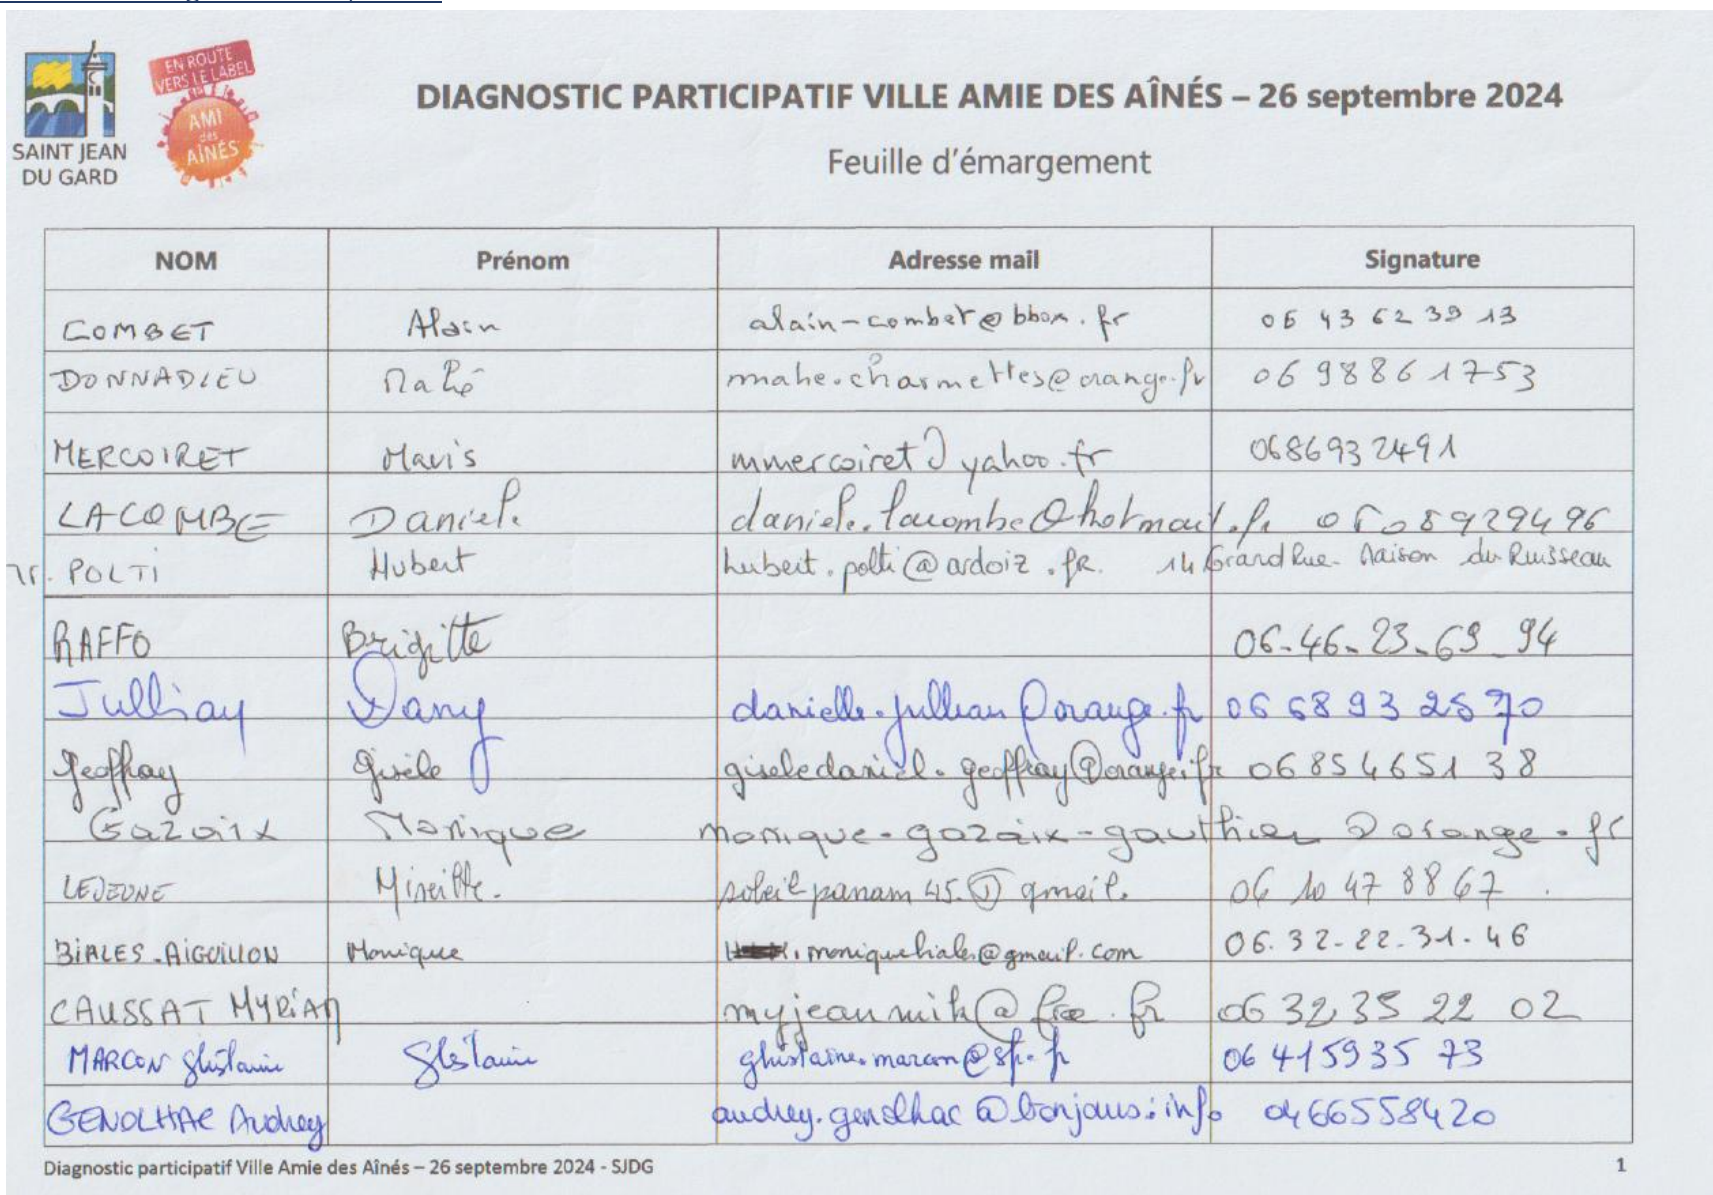 EN ROUTE
VERS LE LABEL
AMI
des
AÎNÉS
SAINT JEAN
DU GARD
DIAGNOSTIC PARTICIPATIF VILLE AMIE DES AÎNÉS – 26 septembre 2024
Feuille d'émargement
NOM Prénom Adresse mail Signature
COMBET Alain alain-combet@bbox.fr 06 43 62 39 13
DONNADIEU Mahé mahe.charmettes@orange.fr 06 98861753
MERCOIRET Mavis mmercoiret@yahoo.fr 0686932491
LACOMBE Daniel. daniele.lacombe@hotmail.fr 0608929496
POLTI Hubert hubert.polti@ardoiz.fR. 14 Grand Rue- Maison du Ruisseau
RAFFO Brigitte 06-46-23-69-94
Jullian Dany danielle.jullian@orange.fr 06 68 93 28 70
Geoffray Gisèle giseledaniel.geoffray@orange.fr 06 85 46 51 38
Gazaix Monique monique-gazaix-gauthier@orange.fr
LEJEUNE Mireille. soleilpanam45.@gmail. 06 10 47 88 67.
BIALES-AIGUILLON Monique moniquebiales@gmail.com 06.32-22-31-46
CAUSSAT MYRIAM myjeanmih@free.fr 06 32 35 22 02
MARCON Ghislaine Ghislaine ghislaine.marcon@sfr.fr 06 41593573
GENOLHAC Audrey audrey.genolhac@bonjaus.info 0466558420
Diagnostic participatif Ville Amie des Aînés – 26 septembre 2024 - SJDG 1